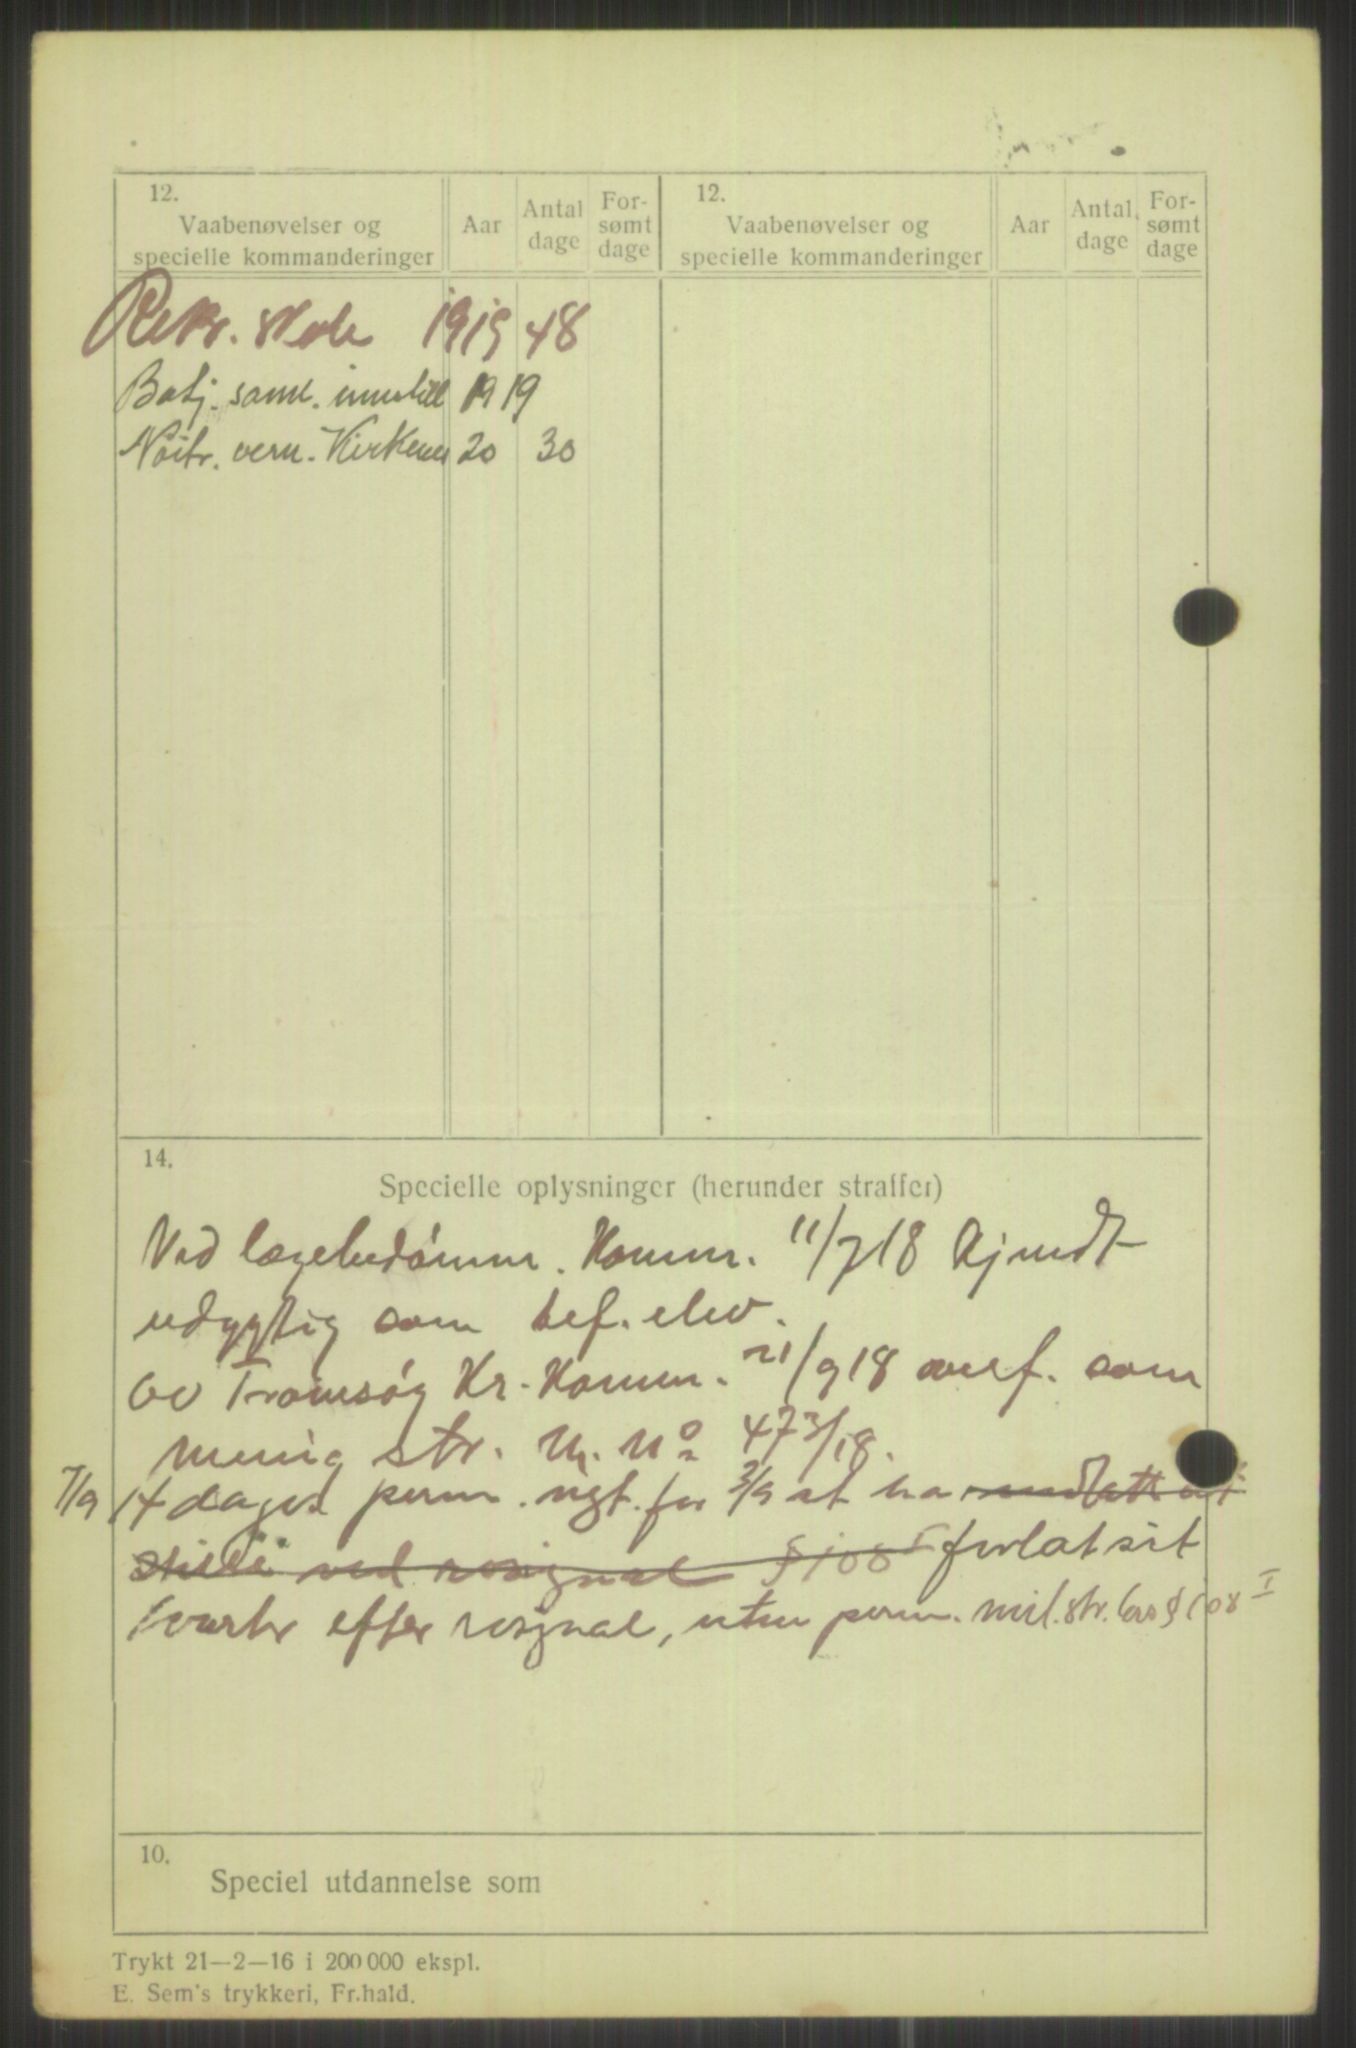 12.
Vaabenøvelser og
specielle kommanderinger
Aar
Antal
dage
For-
sømt
dage
12.
Vaabenøvelser og
specielle kommanderinger
Aar
Antal
dage
For-
sømt
dage
Rekr. skole 1919 48
Batj. saml. innstill 1919
Nöitr. vern. Kirkenes 20 30
14.
Specielle oplysninger (herunder straffer)
Ved lægebedömm. Komm. 11/7 18 kjendt
udygtig som bef. elev.
av Tromsøy Kr. Komm. 21/9 18 overf. som
menig str. No 473/18.
7/9 14 dages perm. negt. for 3/9 at ha
stille ved rosignal § 108 I forlat sit
kvarter efter rosignal, uten perm. mil. str. lov § 108 I
10.
Speciel utdannelse som
Trykt 21—2—16 i 200 000 ekspl.
E. Sem's trykkeri, Fr.hald.